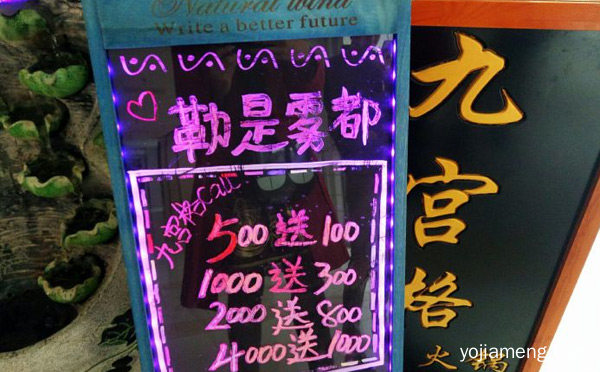 Natural wind
Write a better future
勒是雾都
九宫格Call
500送100
1000送300
2000送800
4000送1000
九宫格
火锅